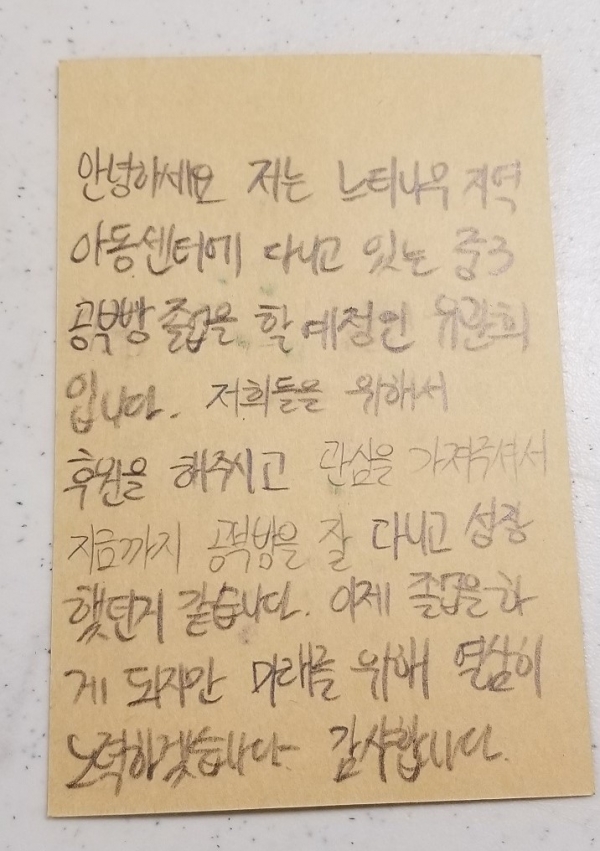 안녕하세요 저는 느티나무 지역
아동센터에 다니고 있는 중3
공부방 졸업을 할 예정인 유관희
입니다. 저희들을 위해서
후원을 해주시고 관심을 가져주셔서
지금까지 공부방을 잘 다니고 성장
했던거 같습니다. 이제 졸업을 하
게 되지만 미래를 위해 열심히
노력하겠습니다 감사합니다.